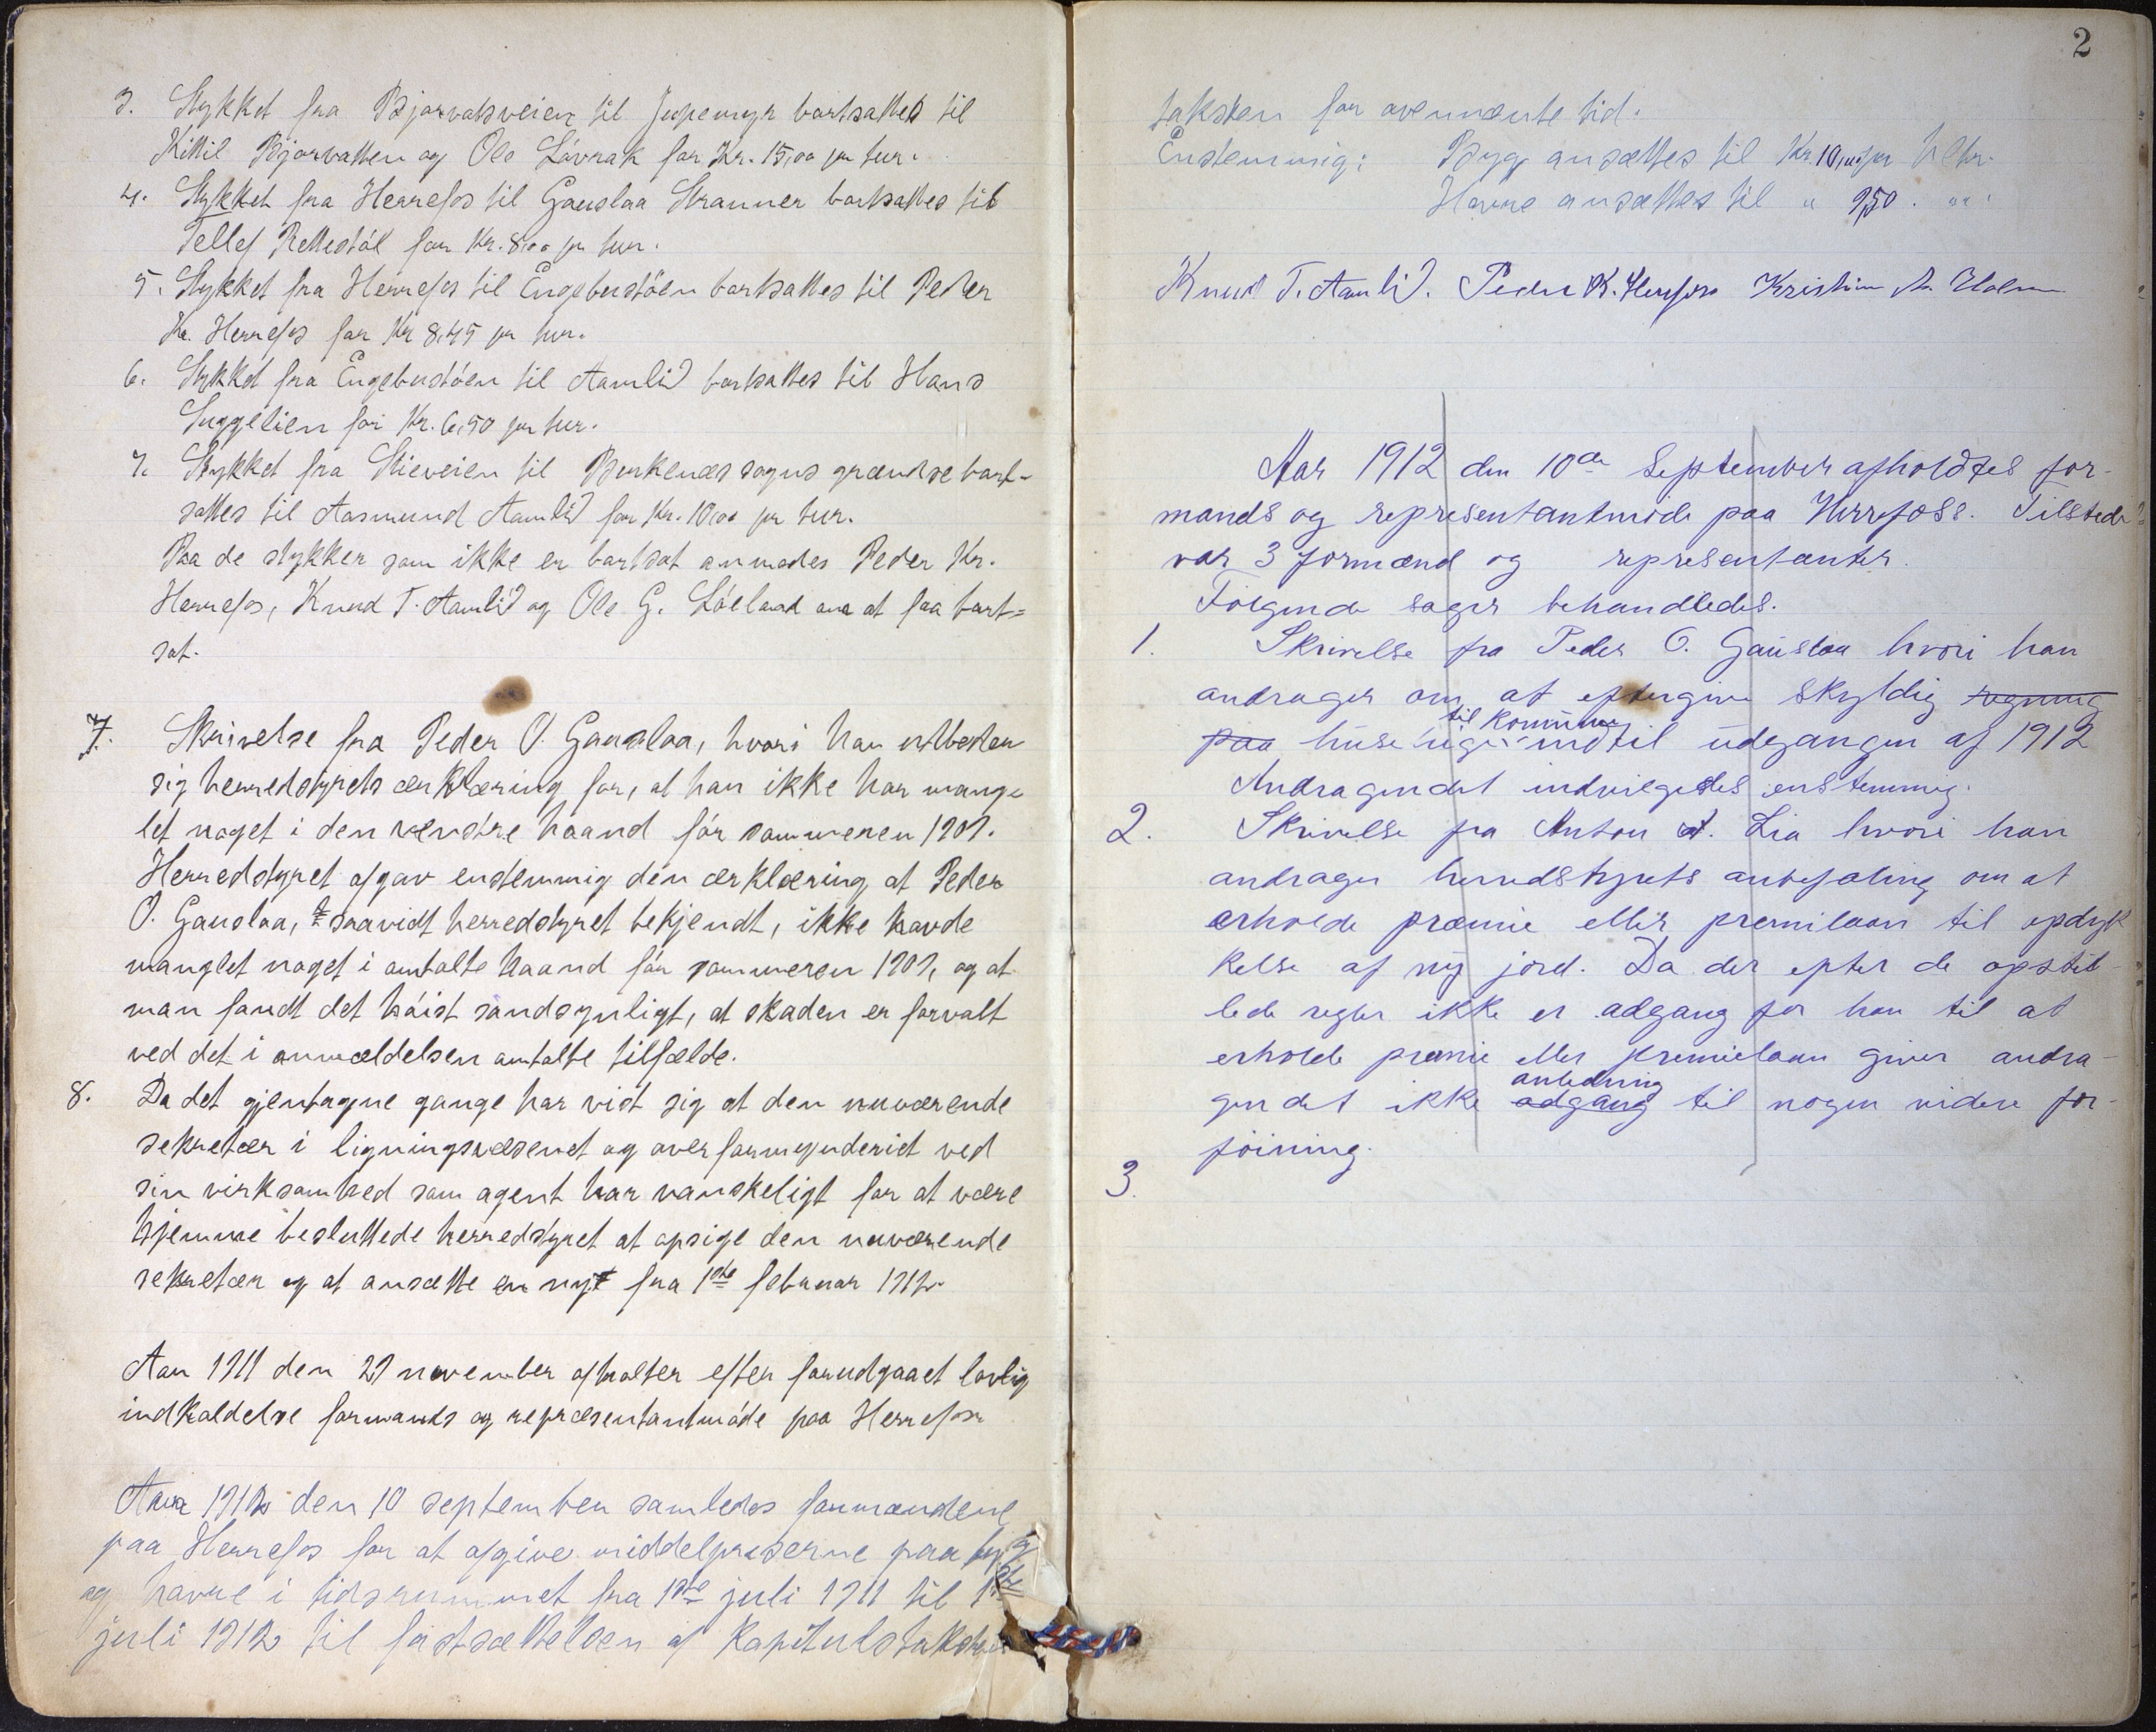 3. Stykket fra Bjorvatsveien til Jupemyr bortsattes til
Kittil Bjorvatten og Ole Lövrak for Kr. 15,00 pr tur.
4. Stykket fra Herrefos til Gauslaa Stranner bortsattes til
Tellef Rettestöl for Kr. 8,00 pr tur.
5. Stykket fra Herrefos til Engebustöen bortsattes til Peder
Kr. Herrefos for Kr 8,45 pr tur.
6. Stykket fra Engebustöen til Aamlid bortsattes til Hans
Suggelien for Kr. 6,50 pr tur.
7. Stykket fra Stieveien til Birkenæs sogns grændse bort-
sattes til Aasmund Aamlid for Kr. 10,00 pr tur.
Paa de stykker som ikke er bortsat anmodes Peder Kr.
Herrefos, Knud T. Aamlid og Ole G. Löland om at faa bort=
sat.
7. Skrivelse fra Peder O. Gauslaa, hvori han utbeder
sig herredstyrets ærklæring for, at han ikke har mang-
let noget i den venstre haand för sommeren 1909.
Herredstyret afgav enstemmig den ærklæring at Peder
O. Gauslaa, saavidt herredstyret bekjendt, ikke havde
manglet noget i omtalte haand för sommeren 1909, og at
man fandt det höist sandsynligt, at skaden er forvalt
ved det i anmældelsen omtalte tilfælde.
8. Da det gjentagne gange har vist sig at den nuværende
sekretær i ligningsvæsenet og overformynderiet ved
sin virksomhed som agent har vanskeligt for at være
hjemme besluttede herredstyret at opsige den nuværende
sekretær og at ansætte en ny fra 1ste februar 1912.
Aar 1911 den 29 november afholtes efter forudgaaet lovlig
indkaldelse formands og repræsentantmöde paa Herrefos
Aar 1912 den 10 september samledes formændene
paa Herrefos for at afgive middelpriserne paa byg
og havre i tidsrummet fra 1ste juli 1911 til 1ste
juli 1912 til fastsættelsen af Kapitulstaksten
2
taksten for ovennævnte tid.
Enstemmig: Byg ansættes til Kr. 10,00 pr hltr.
Havre ansættes til " 9,50. " "
Knud T. Aamlid. Peder K. Herrefoss Kristian A. Holm
Aar 1912 den 10de September afholdtes for-
mands og representantmöde paa Herrefoss. Tilstede
var 3 formænd og representanter.
Fölgende sager behandledes.
1. Skrivelse fra Peder O. Gauslaa hvori han
andrager om at eftergive skyldig regning
paa huseleige til kommunen indtil udgangen af 1912
Andragendet indvilgedes enstemmig.
2. Skrivelse fra Anton A. Lia hvori han
andrager herredstyrets anbefaling om at
erholde præmie eller premilaan til opdyr
kelse af ny jord. Da der efter de opstil-
lede regler ikke er adgang for han til at
erholde premie eller premielaan giver andra-
gendet ikke adgang anledning til nogen videre for-
föining.
3.